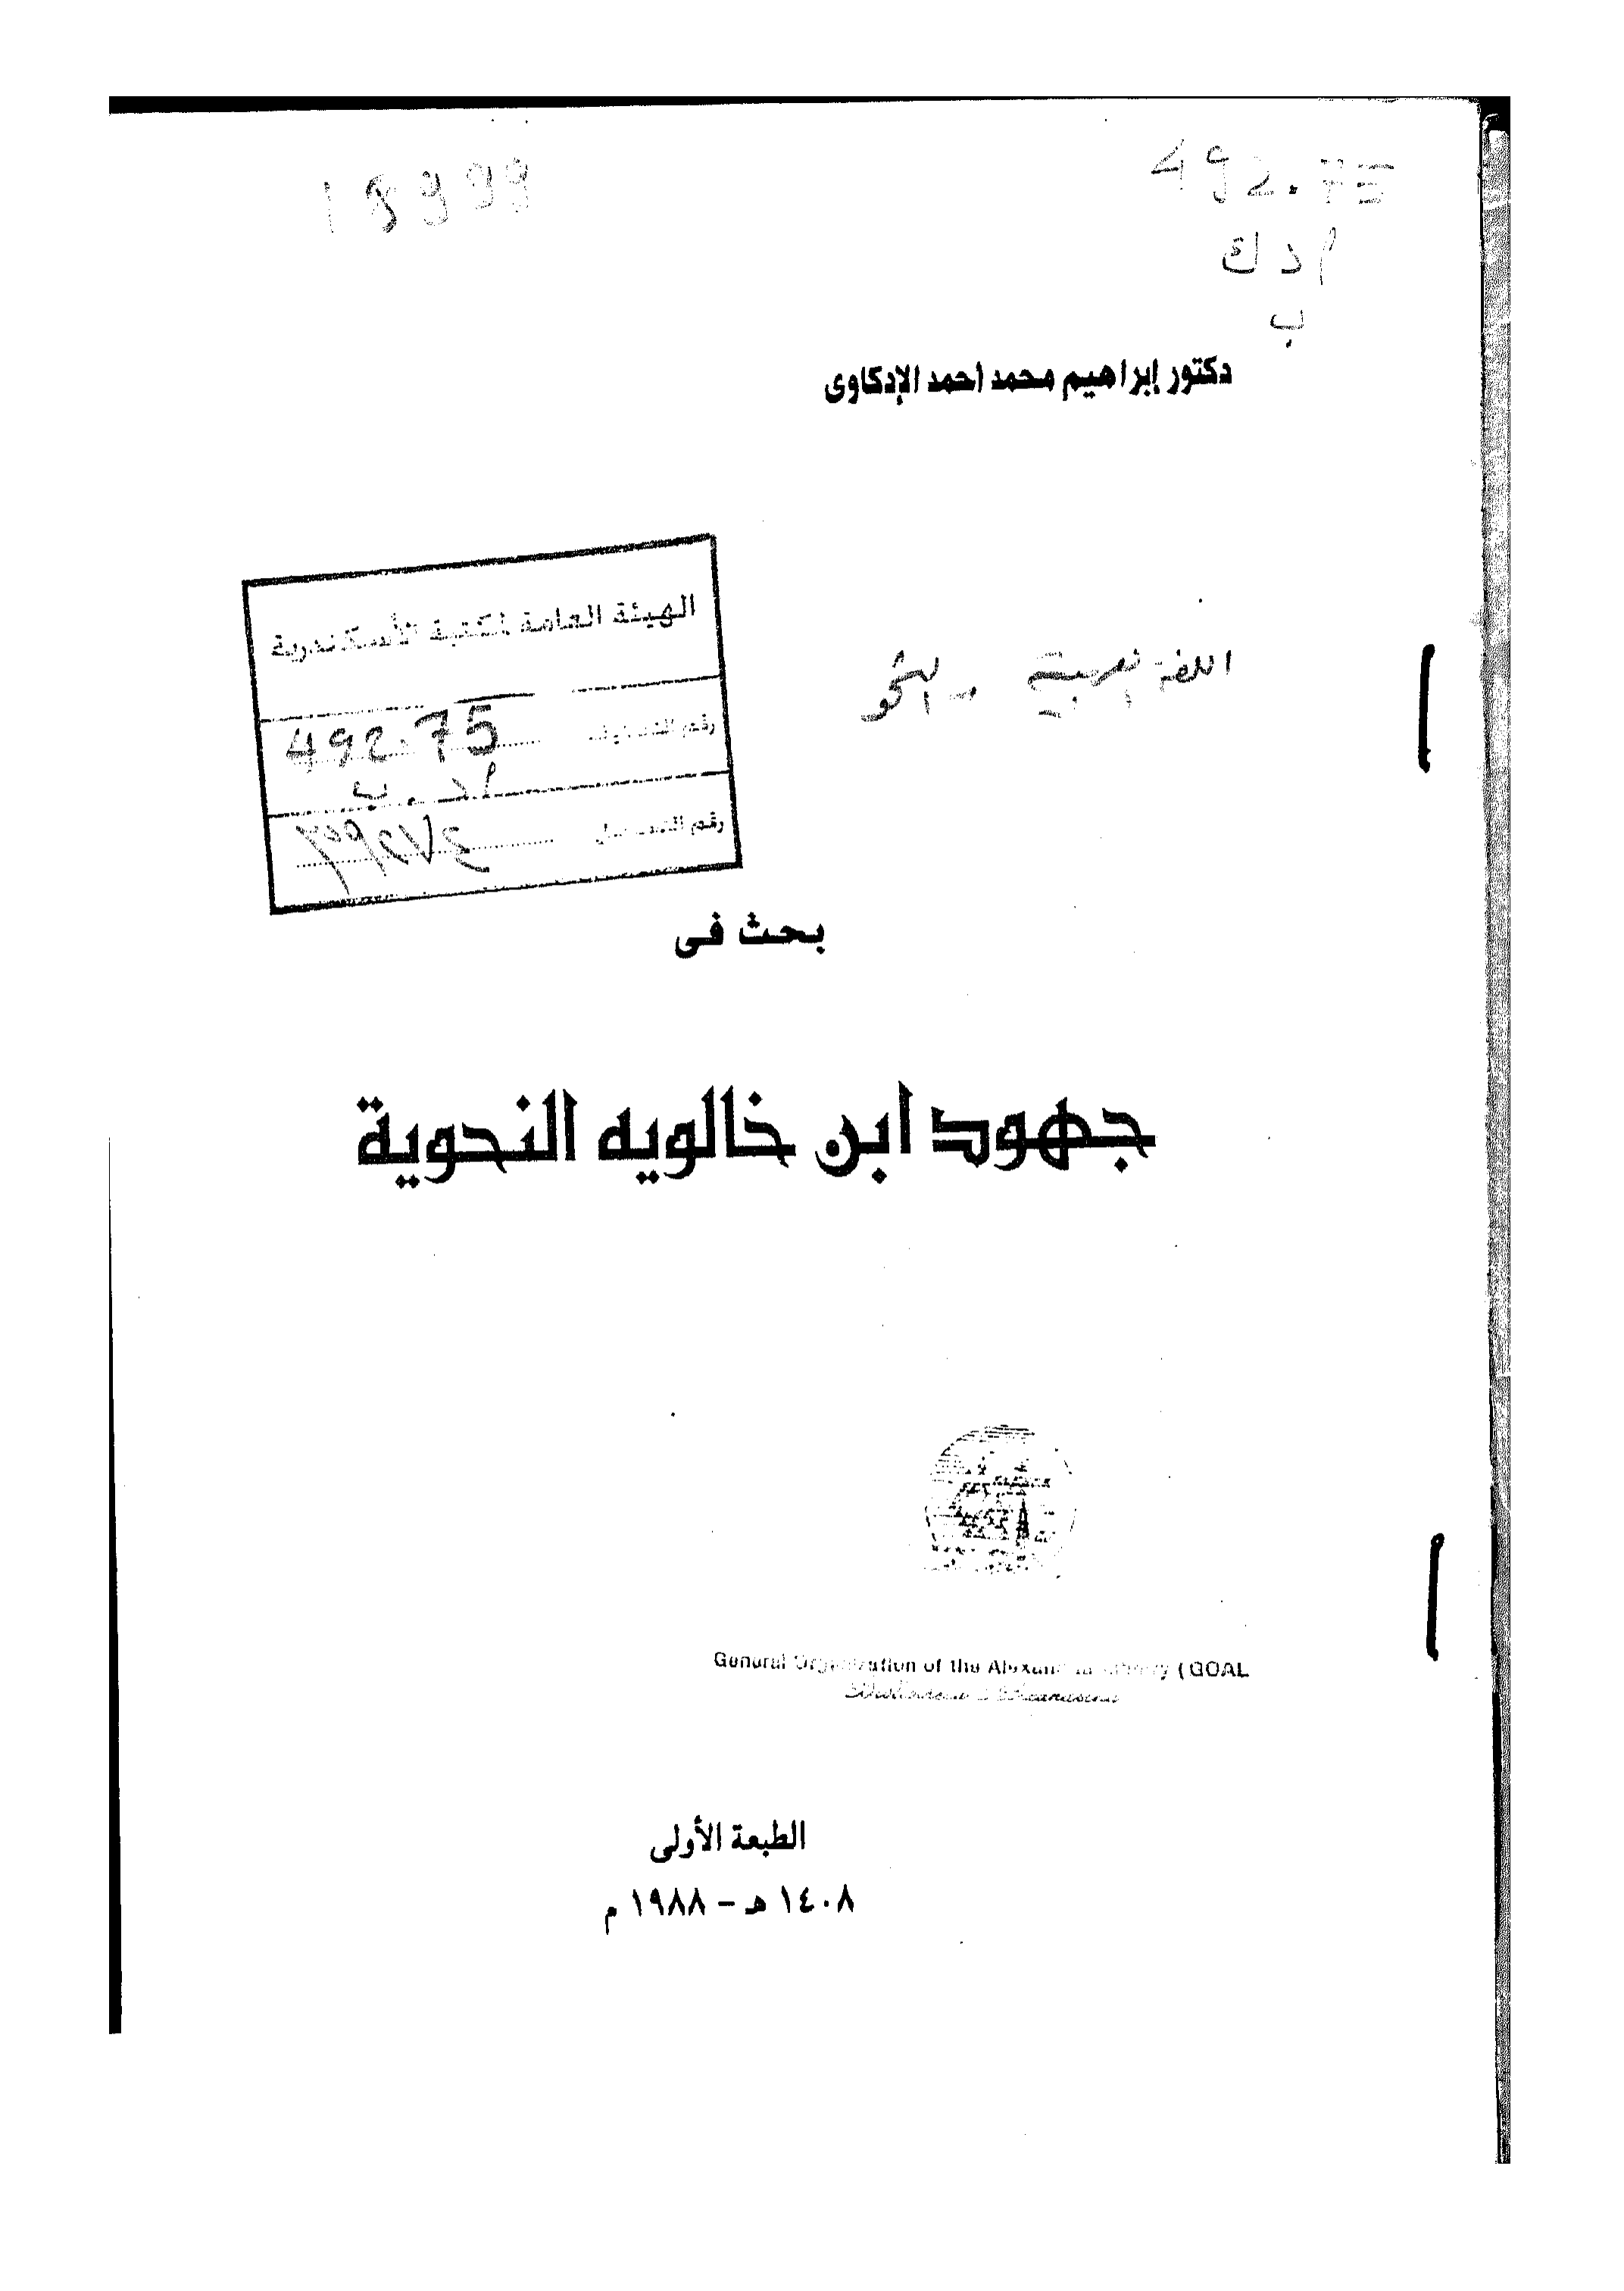 18999
492.75
ادك
ب
دكتور إبراهيم محمد أحمد الإدكاوى
الهيئة العامة لمكتبة الأسكندرية
رقم التصنيف 492.75
اد . ب
رقم التسجيل
اللغة العربية - النحو
بحث فى
جهود ابن خالويه النحوية
General Organization of the Alexandria Library (GOAL
Bibliotheca Alexandrina
الطبعة الأولى
١٤٠٨ هـ - ١٩٨٨ م